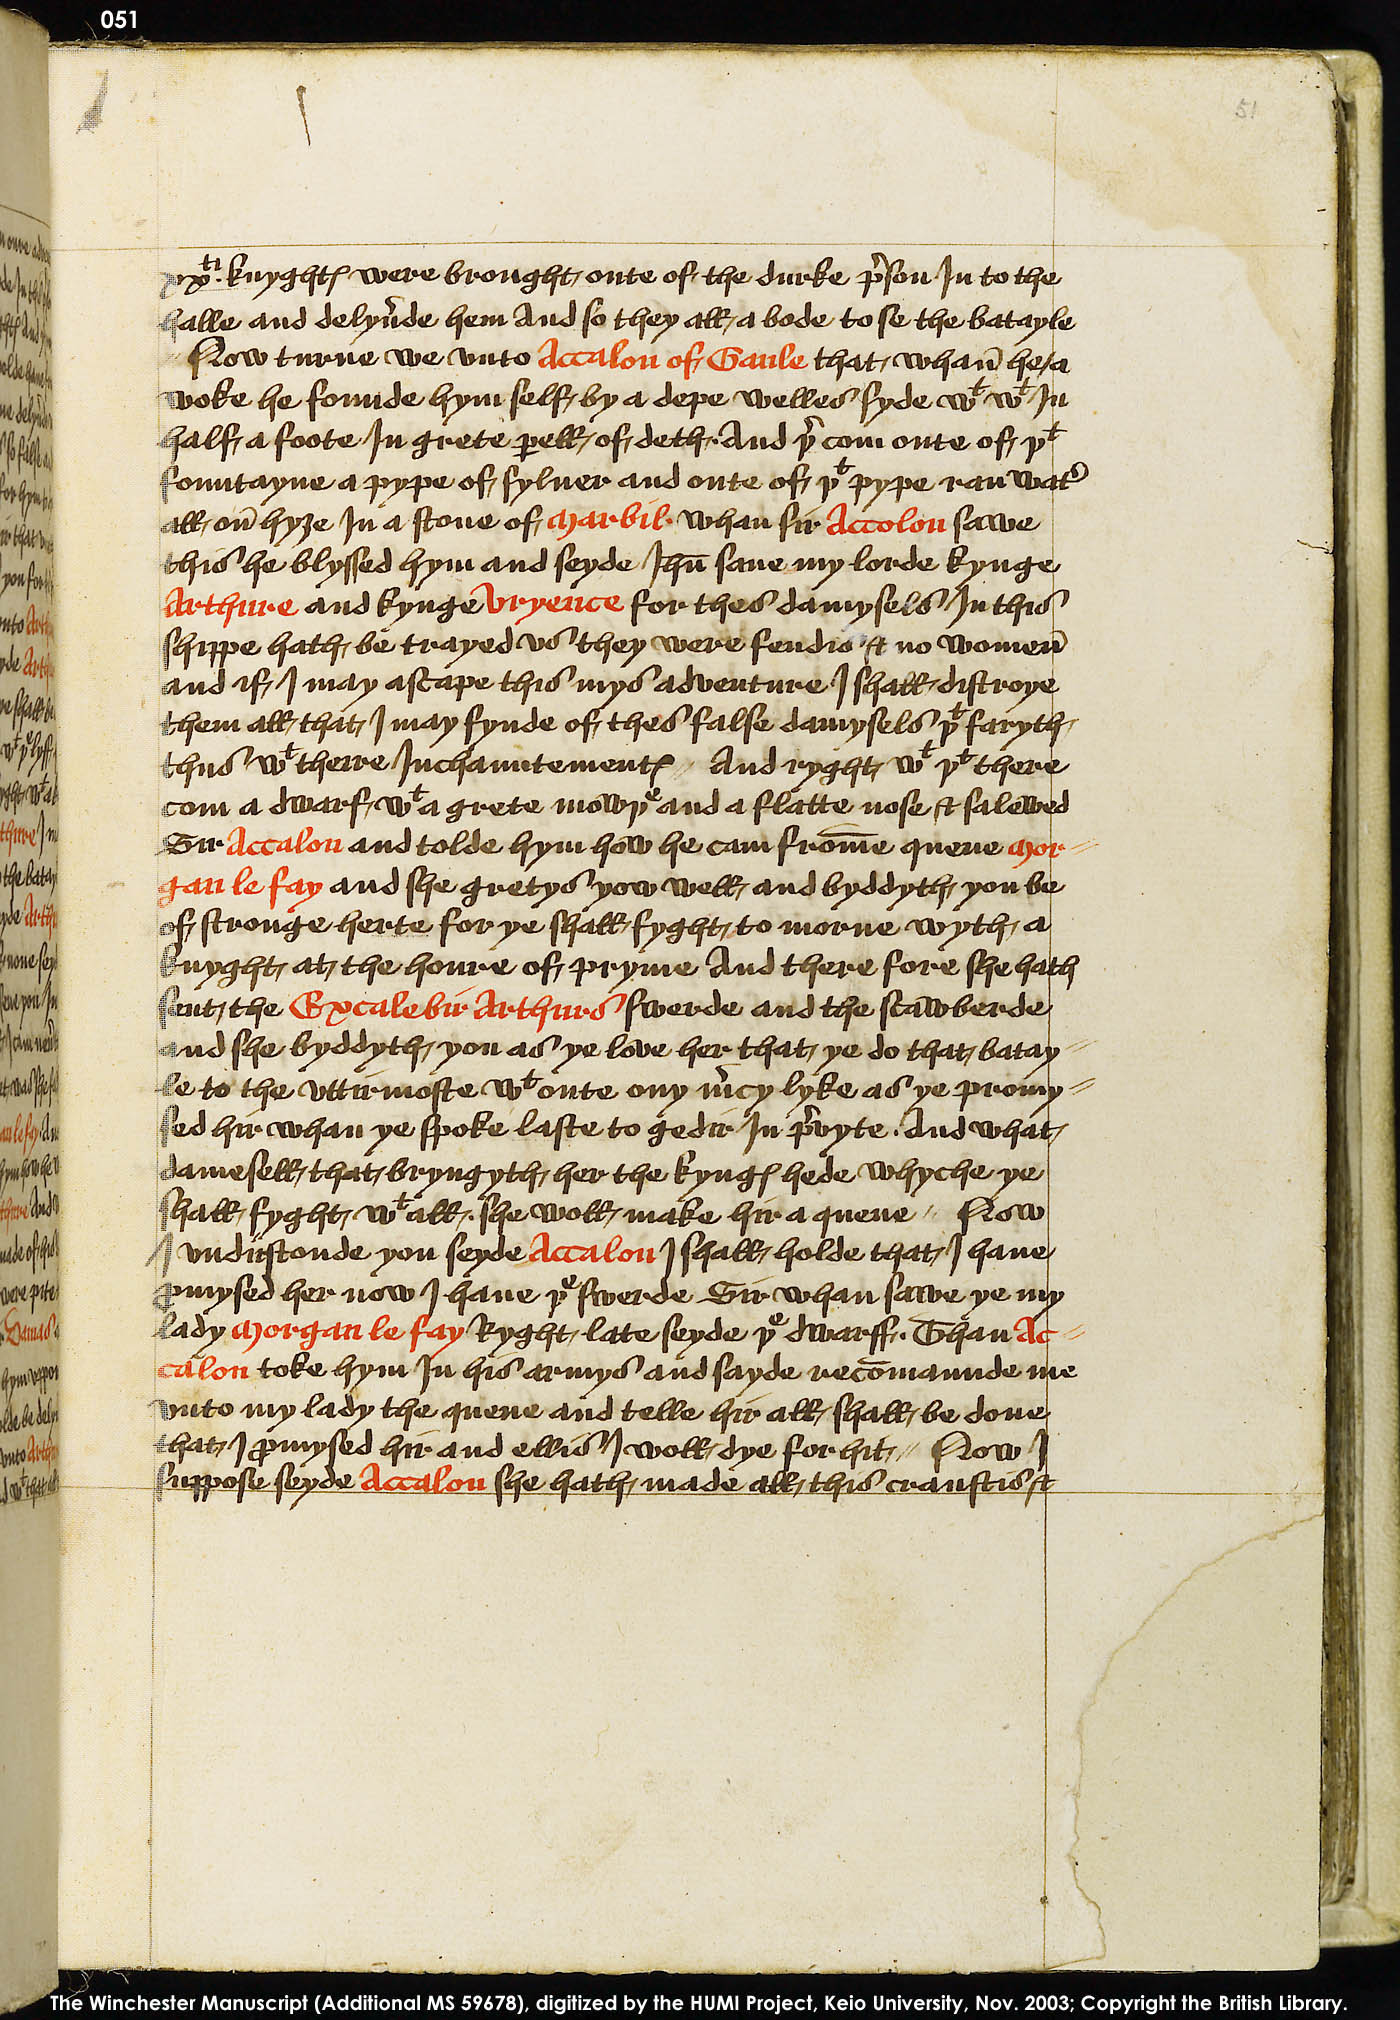 051
51
xxti. knyghtꝭ were brought oute of the durke p̛son In to the
halle and delyưde hem And so they all a bode to se the batayle
Now turne we vnto Accalon of Gaule that whan̄ he a
woke he founde hym self by a depe welles syde wt wt In
half a foote In grete ꝑell of deth. And þ̛ com oute of þt
fountayne a pype of syluer and oute of þt pype ran wat̛
all on̄ hyȝe In a stone of Marbil. whan sir Accolon sawe
this he blyssed hym and seyde Ihū saue my lorde kynge
Arthure and kynge Vryence for thes damysels In this
shippe hath be trayed vs they were fendis & no women̄
and if I may ascape this mys adventure I shall distroye
them all that I may fynde of thes false damysels þt faryth
thus wt theire Inchauntementꝭ // And ryght wt þt there
com a dwarf wt a grete mowþe and a flatte nose & salewed
Sir Accalon and tolde hym how he cam frome quene Mor=
gan le fay and she gretys yow well and byddyth you be
of stronge herte for ye shall fyght to morne wyth a
knyght at the houre of pryme And there fore she hath
sent the Excalebir Arthurs swerde and the scawberde
and she byddyth you as ye love her that ye do that batay=
le to the vttirmoste wt oute ony m̛cy lyke as ye promy=
sed hir whan ye spoke laste to gedir In p̛vyte. And what
damesell that bryngyth her the kyngꝭ hede whyche ye
shall fyght wt all. she woll make hir a quene // Now
I vndirstonde you seyde Accalon I shall holde that I haue
ꝓmysed her now I haue þe swerde Sir whan sawe ye my
lady Morgan le fay Ryght late seyde þe dwarff. Than Ac=
calon toke hym In his armys and sayde recōmaunde me
vnto my lady the quene and telle hir all shall be done
that I ꝓmysed hir and ellis I woll dye for hit // Now I
suppose seyde Accalon she hath made all this crauftis &
The Winchester Manuscript (Additional MS 59678), digitized by the HUMI Project, Keio University, Nov. 2003; Copyright the British Library.